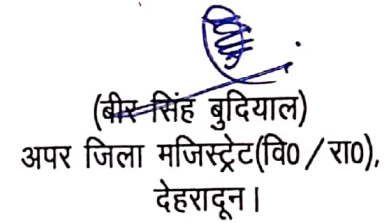 (बीर सिंह बुदियाल)
अपर जिला मजिस्ट्रेट(वि0/रा0),
देहरादून।